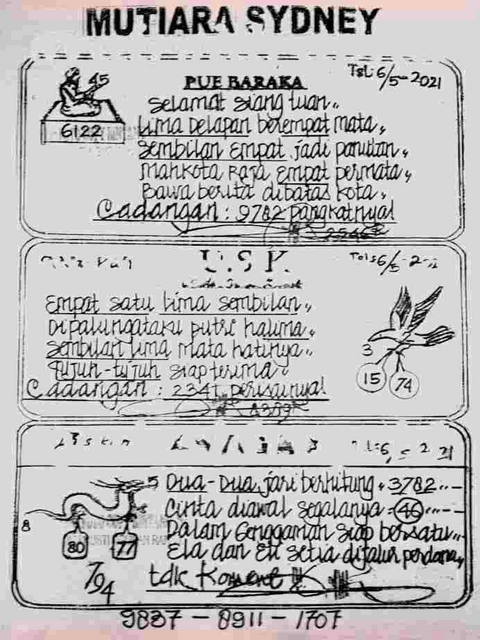 MUTIARA SYDNEY
45
6122
PUE BARAKA
Tgl: 6/5-2021
Selamat siang tuan..
Lima Delapan berempat mata,
sembilan Empat jadi panutan,
mahkota Raja Empat permata,
Bawa berita dibatas kota,
Cadangan: 9782 pangkatnya!
U.S.K.
Empat satu Lima sembilan,,
Dipalungataku putri halima,
sembilan Lima mata hatinya..
Tujuh-tujuh siap terima
Cadangan: 2341
3
15
74
5
8
80
77
794
Dua-Dua jari berhitung, 3782..--
Cinta diawal segalanya, 46..---
Dalam Genggaman siap bersatu..
Ela dan Eli setia dijalur perdana,
tdk Koment
9837-8911-1707